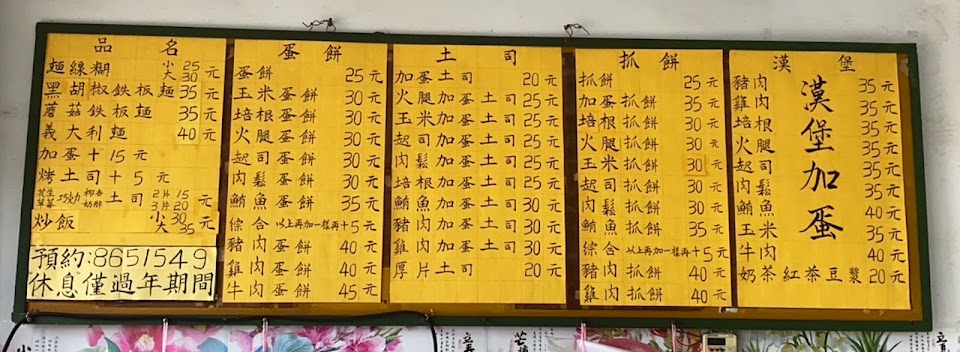 品名
麵線糊 小25元
大30
黑胡椒鉄板麵 35元
蘑菇鉄板麵 35元
義大利麵 40元
加蛋+15元
烤土司+5元
花生 巧克力 椰香 土司 2片15元
草莓 奶酥 3片20
炒飯 小30元
大35
預約:8651549
休息僅過年期間
蛋餅
蛋餅 25元
玉米蛋餅 30元
培根蛋餅 30元
火腿蛋餅 30元
起司蛋餅 30元
肉鬆蛋餅 30元
鮪魚蛋餅 35元
綜合以上再加一樣再+5元
豬肉蛋餅 40元
雞肉蛋餅 40元
牛肉蛋餅 45元
土司
加蛋土司 20元
火腿加蛋土司 25元
玉米加蛋土司 25元
起司加蛋土司 25元
肉鬆加蛋土司 25元
培根加蛋土司 25元
鮪魚加蛋土司 30元
豬肉加蛋土司 30元
雞肉加蛋土司 30元
厚片土司 20元
抓餅
抓餅 25元
加蛋抓餅 30元
培根抓餅 30元
火腿抓餅 30元
玉米抓餅 30元
起司抓餅 30元
肉鬆抓餅 30元
鮪魚抓餅 30元
綜合以上再加一樣再+5元
豬肉抓餅 40元
雞肉抓餅 40元
漢堡
漢堡加蛋
豬肉 35元
雞肉 35元
培根 35元
火腿 35元
起司 35元
肉鬆 35元
鮪魚 40元
玉米 35元
牛肉 40元
奶茶紅茶豆漿20元